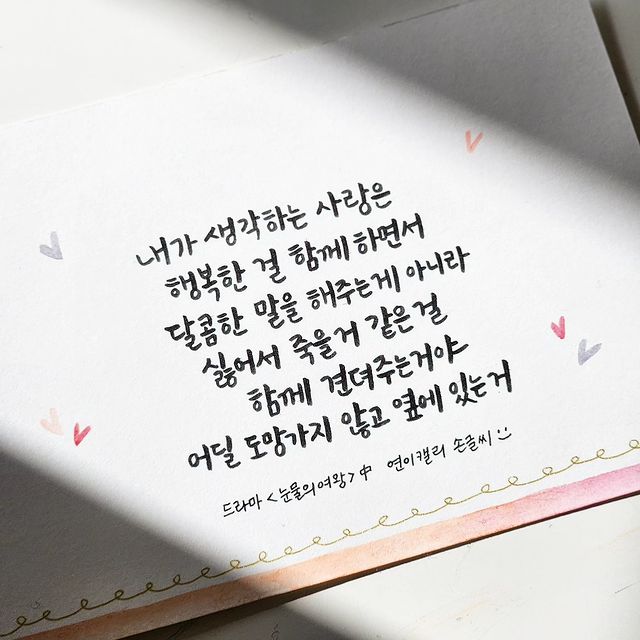 내가 생각하는 사랑은
행복한 걸 함께 하면서
달콤한 말을 해주는게 아니라
싫어서 죽을거 같은걸
함께 견뎌주는거야
어딜 도망가지 않고 옆에 있는거
드라마 <눈물의여왕> 中 연이캘리 손글씨 :)